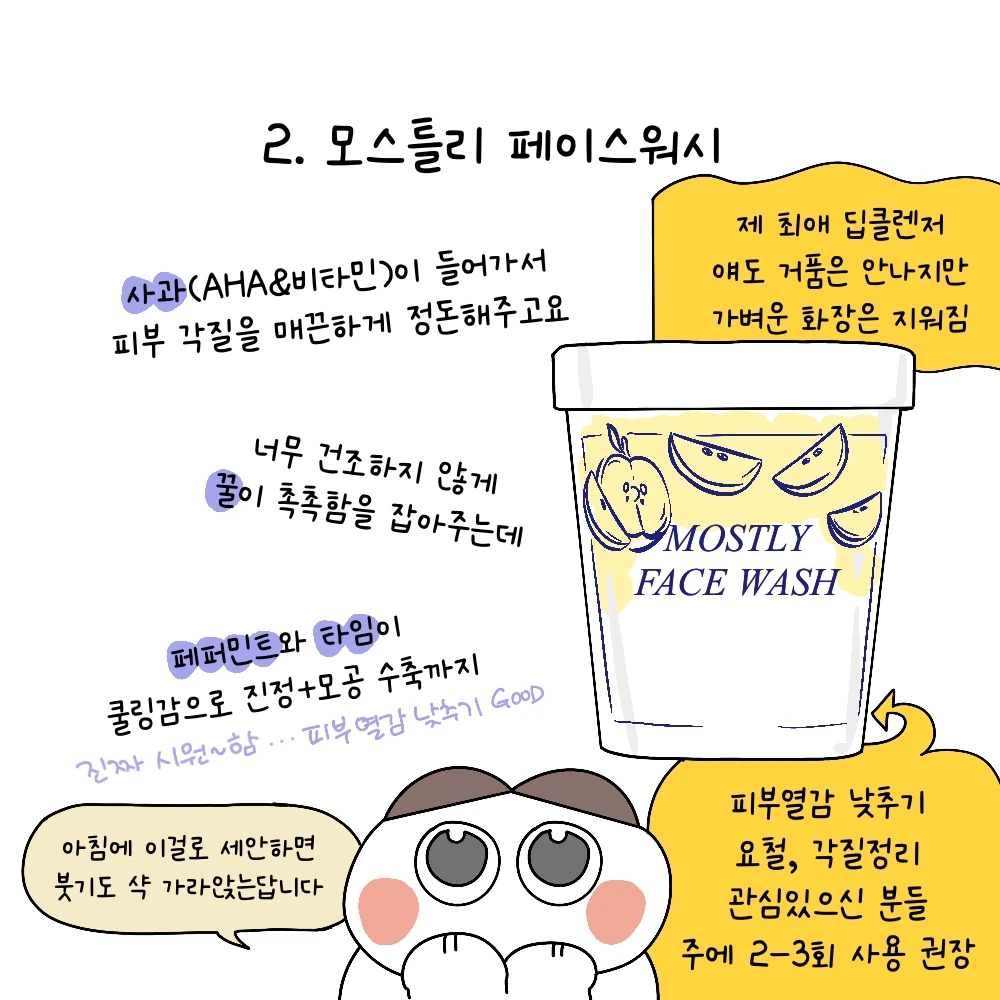 2. 모스틀리 페이스워시
제 최애 딥클렌저
얘도 거품은 안나지만
가벼운 화장은 지워짐
사과(AHA&비타민)이 들어가서
피부 각질을 매끈하게 정돈해주고요
너무 건조하지 않게
꿀이 촉촉함을 잡아주는데
MOSTLY
FACE WASH
페퍼민트와 타임이
쿨링감으로 진정+모공 수축까지
진짜 시원~함 ... 피부열감 낮추기 GOOD
아침에 이걸로 세안하면
붓기도 샥 가라앉는답니다
피부열감 낮추기
요철, 각질정리
관심있으신 분들
주에 2-3회 사용 권장